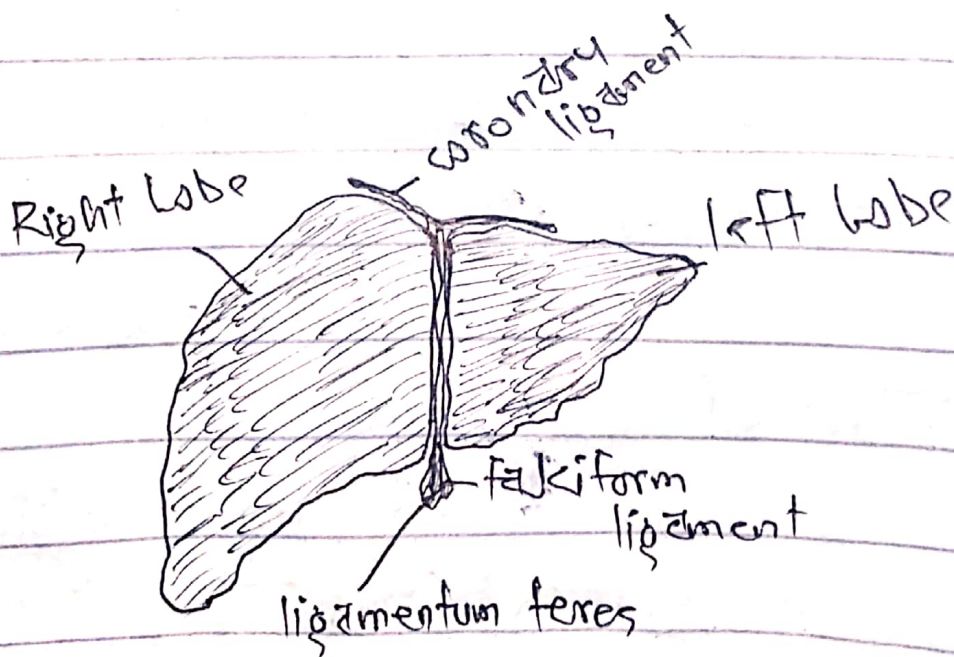 coronary
ligament
Right Lobe
left Lobe
falciform
ligament
ligamentum teres